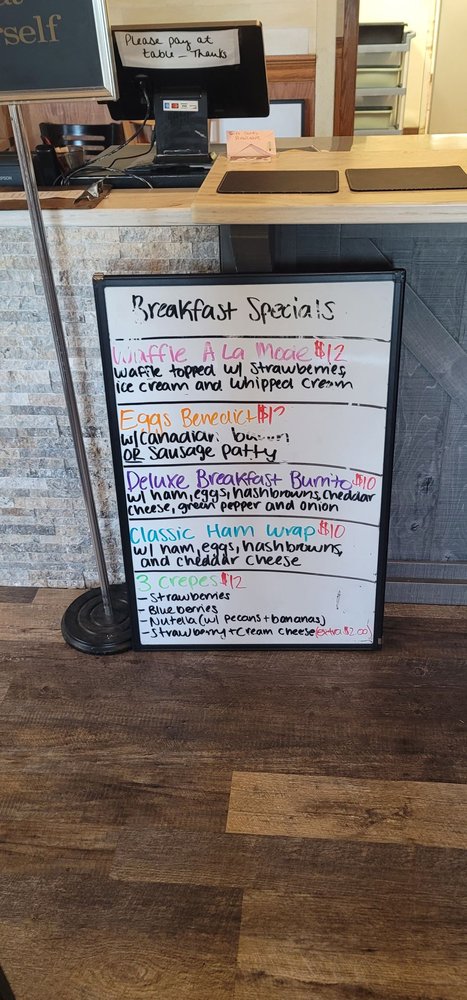 rself
Please pay at
table - Thanks
EPSON
Breakfast Specials
Waffle À La Mode $12
waffle topped w/ strawberries,
ice cream and whipped cream
Eggs Benedict
w/ Canadian bacon
OR Sausage patty
Deluxe Breakfast Burrito $10
w/ ham, eggs, hashbrowns, cheddar
cheese, green pepper and onion
Classic Ham Wrap $10
w/ ham, eggs, hashbrowns,
and cheddar cheese
3 Crepes $12
- Strawberries
- Blueberries
- Nutella (w/ pecans + bananas)
- Strawberry + Cream cheese (extra $2.00)